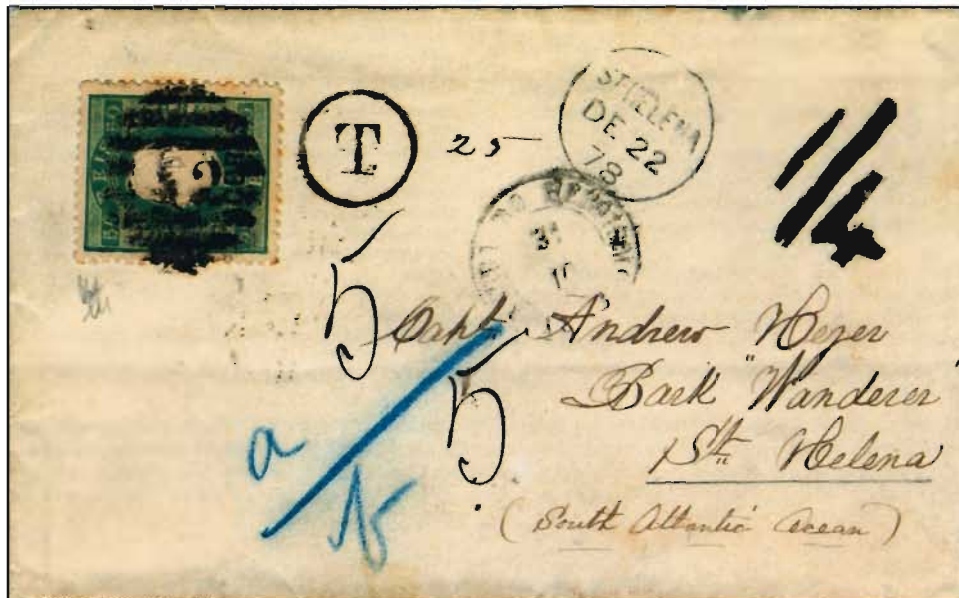 T
25
ST HELENA
DE 22
78
1/4
5
5
Capt. Andrew Heyer
Bark "Wanderer"
St. Helena
(South Atlantic Ocean)
a